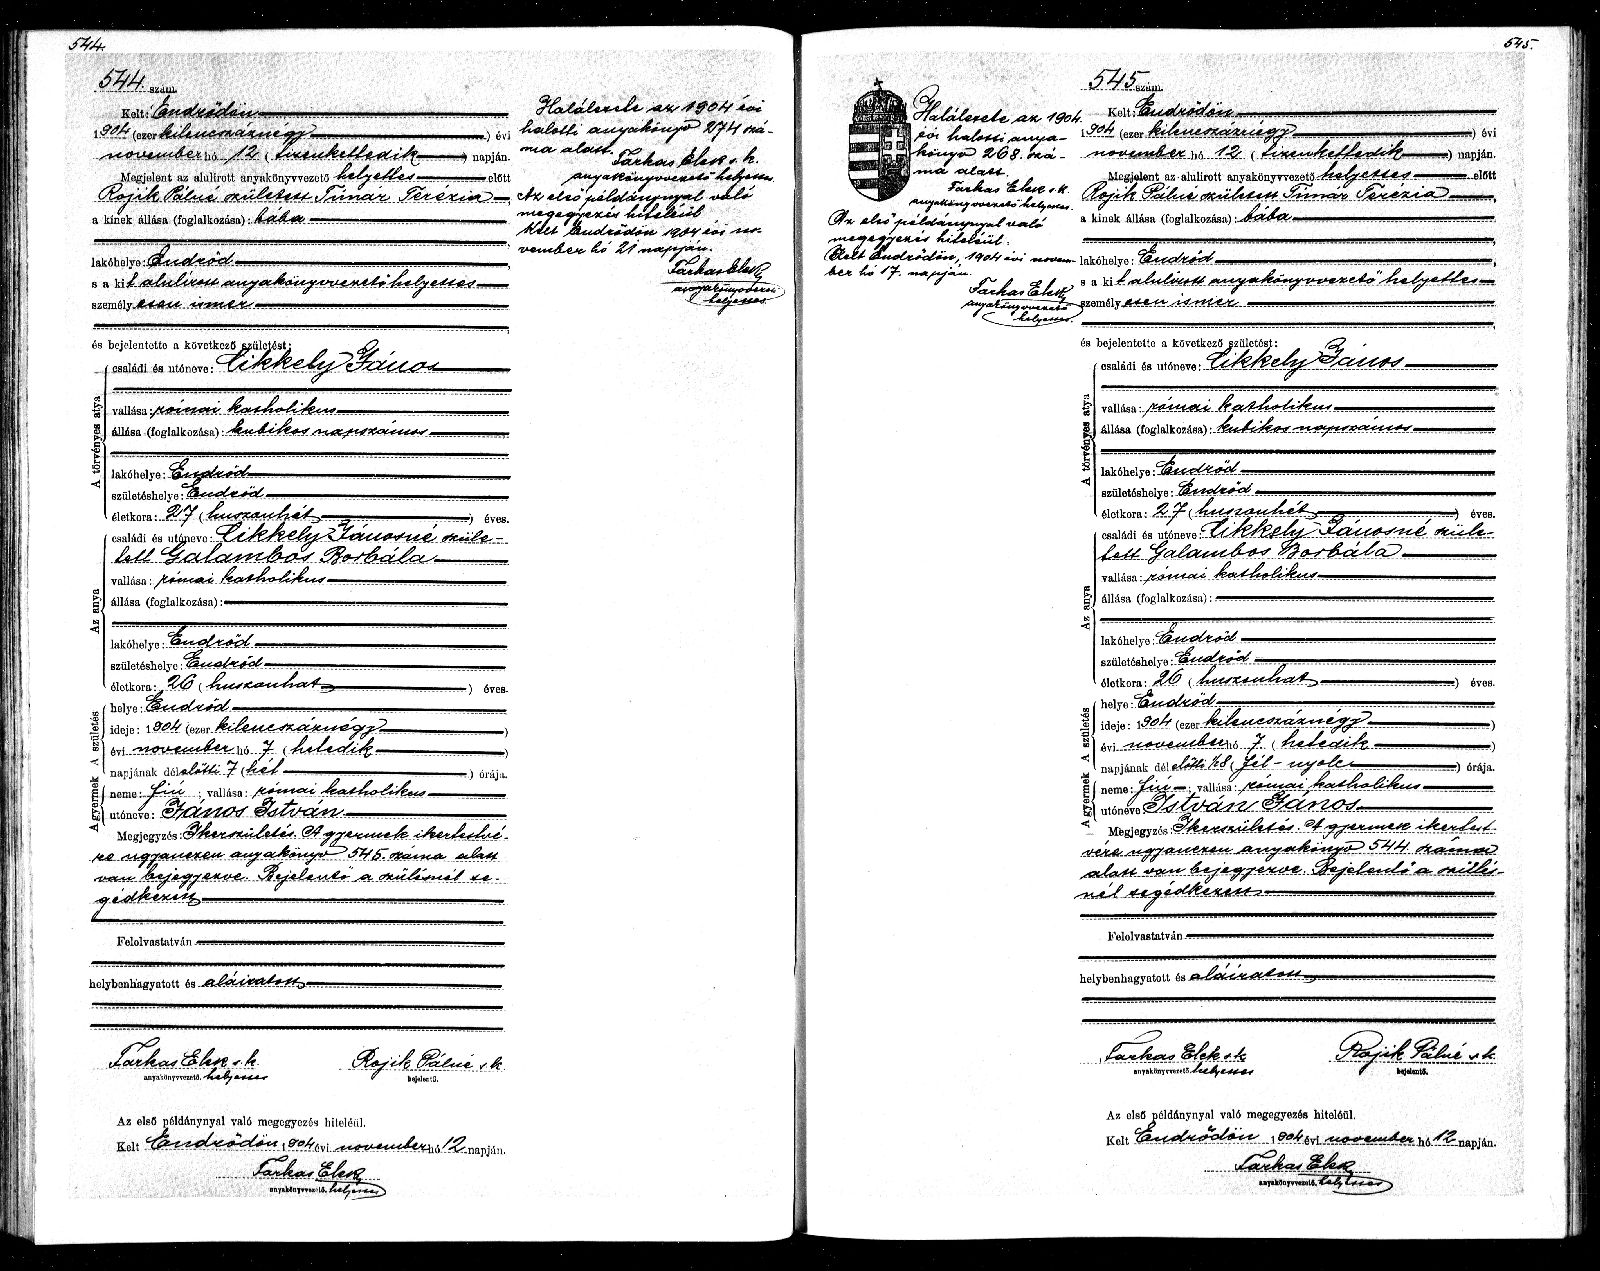 544.
544. szám.
Kelt: Endrődön
1904 (ezer kilenczáznégy) évi
november hó 12 (tizenkettedik) napján.
Megjelent az alulirott anyakönyvvezető helyettes előtt
Rojik Pálné született Tímár Terézia,
a kinek állása (foglalkozása): bába
lakóhelye: Endrőd
s a kit alulirott anyakönyvvezető helyettes
személyesen ismer
és bejelentette a következő születést:
A törvényes atya
családi és utóneve: Cikkely János
vallása: római katholikus
állása (foglalkozása): kubikos napszámos
lakóhelye: Endrőd
születéshelye: Endrőd
életkora: 27 (huszonhét) éves.
Az anya
családi és utóneve: Cikkely Jánosné szüle-
tett Galambos Borbála
vallása: római katholikus
állása (foglalkozása):
lakóhelye: Endrőd
születéshelye: Endrőd
életkora: 26 (huszonhat) éves.
A születés
helye: Endrőd
ideje: 1904 (ezer kilenczáznégy)
évi november hó 7 (hetedik)
napjának délelőtti 7 (hét) órája.
A gyermek
neme: fiú; vallása: római katholikus
utóneve: János István
Megjegyzés: Ikerszületés. A gyermek ikertestvé-
re ugyanezen anyakönyv 545. száma alatt
van bejegyezve. Bejelentő a szülésnél se-
gédkezett
Felolvastatván
helybenhagyatott és aláiratott
Farkas Elek s. k.
anyakönyvvezető helyettes
Rojik Pálné s k.
bejelentő.
Az első példánynyal való megegyezés hiteléül.
Kelt Endrődön 1904 évi november hó 12 napján.
Farkas Elek
anyakönyvvezető helyettes
Halálesete az 1904 évi
halotti anyakönyv 274 szá-
ma alatt.
Farkas Elek s. k.
anyakönyvvezető helyettes.
Az első példánynyal való
megegyezés hiteléül
Kelt Endrődön 1904 évi no-
vember hó 21 napján.
Farkas Elek
anyakönyvvezető
helyettes.
545.
Halálesete az 1904
évi halotti anya-
könyv 268. szá-
ma alatt
Farkas Elek s k.
anyakönyvvezető helyettes.
Az első példánynyal való
megegyezés hiteléül.
Kelt Endrődön, 1904 évi novem-
ber hó 17. napján.
Farkas Elek
anyakönyvvezető
helyettes.
545 szám.
Kelt: Endrődön
1904 (ezer kilenczáznégy) évi
november hó 12 (tizenkettedik) napján.
Megjelent az alulirott anyakönyvvezető helyettes előtt
Rojik Pálné született Tímár Terézia
a kinek állása (foglalkozása): bába
lakóhelye: Endrőd
s a kit alulirott anyakönyvvezető helyettes
személyesen ismer
és bejelentette a következő születést:
A törvényes atya
családi és utóneve: Cikkely János
vallása: római katholikus
állása (foglalkozása): kubikos napszámos
lakóhelye: Endrőd
születéshelye: Endrőd
életkora: 27 (huszonhét) éves.
Az anya
családi és utóneve: Cikkely Jánosné szüle-
tett Galambos Borbála
vallása: római katholikus
állása (foglalkozása):
lakóhelye: Endrőd
születéshelye: Endrőd
életkora: 26 (huszonhat) éves.
A születés
helye: Endrőd
ideje: 1904 (ezer kilenczáznégy)
évi november hó 7 (hetedik)
napjának délelőtti ½8 (fél-nyolc) órája.
A gyermek
neme: fiú; vallása: római katholikus
utóneve: István János
Megjegyzés: Ikerszületés. A gyermek ikertest
vére ugyanezen anyakönyv 544. száma
alatt van bejegyezve. Bejelentő a szülés-
nél segédkezett
Felolvastatván
helybenhagyatott és aláiratott
Farkas Elek s k
anyakönyvvezető helyettes
Rojik Pálné s k.
bejelentő.
Az első példánynyal való megegyezés hiteléül.
Kelt Endrődön 1904 évi november hó 12 napján.
Farkas Elek
anyakönyvvezető helyettes